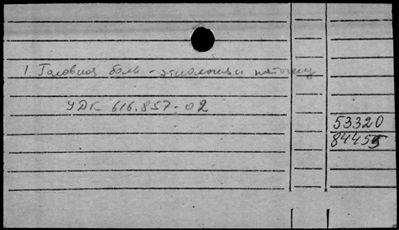 1. Головная боль - этиология и патогенез
УДК 616.857-02
53320
84455